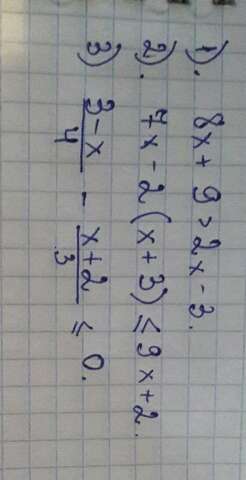 1). 8x + 9 > 2x - 3.
2). 7x - 2(x + 3) ≤ 9x + 2.
3) (3-x)/4 - (x+2)/3 ≤ 0.